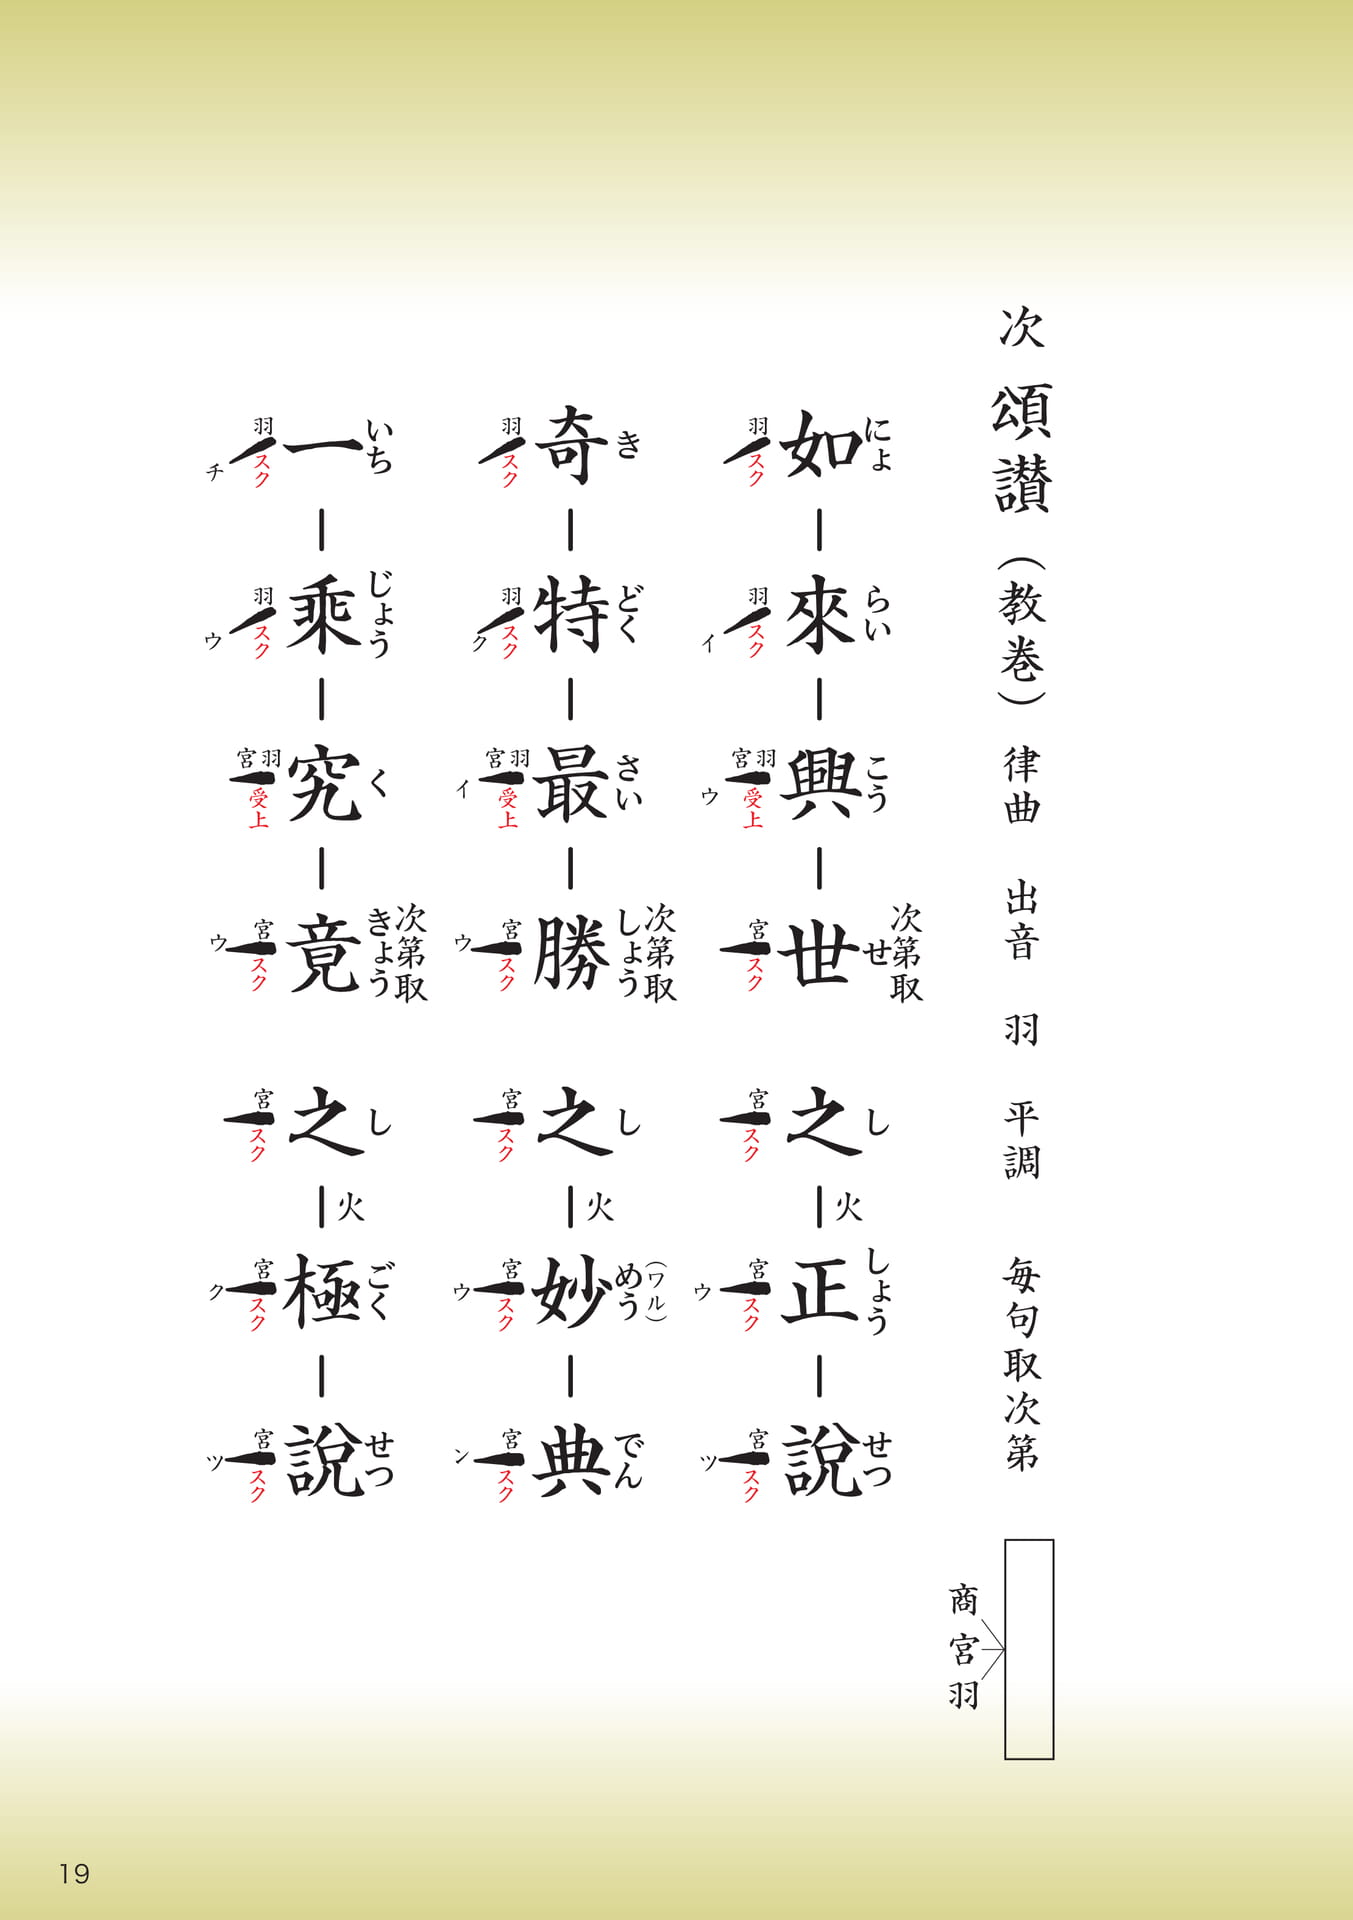 次 頌讃（教巻） 律曲 出音 羽 平調 毎句取次第
商 宮 羽
次第取
にょ らい こう せ し しょう せつ
如 來 興 世 之 火 正 說
羽 スク 羽 スク イ 宮羽 受上 ウ 宮 スク 宮 スク 宮 スク ウ 宮 スク ツ
次第取 （ワル）
き どく さい しょう し めう でん
奇 特 最 勝 之 火 妙 典
羽 スク 羽 スク ク 宮羽 受上 イ 宮 スク ウ 宮 スク 宮 スク ウ 宮 スク ン
次第取
いち じょう く きょう し ごく せつ
一 乘 究 竟 之 火 極 說
羽 スク チ 羽 スク ウ 宮羽 受上 宮 スク ウ 宮 スク 宮 スク ク 宮 スク ツ
19